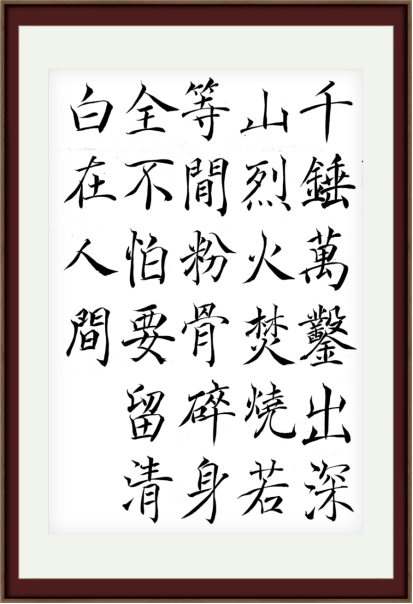 千錘萬鑿出深
山烈火焚燒若
等閒粉骨碎身
全不怕要留清
白在人間